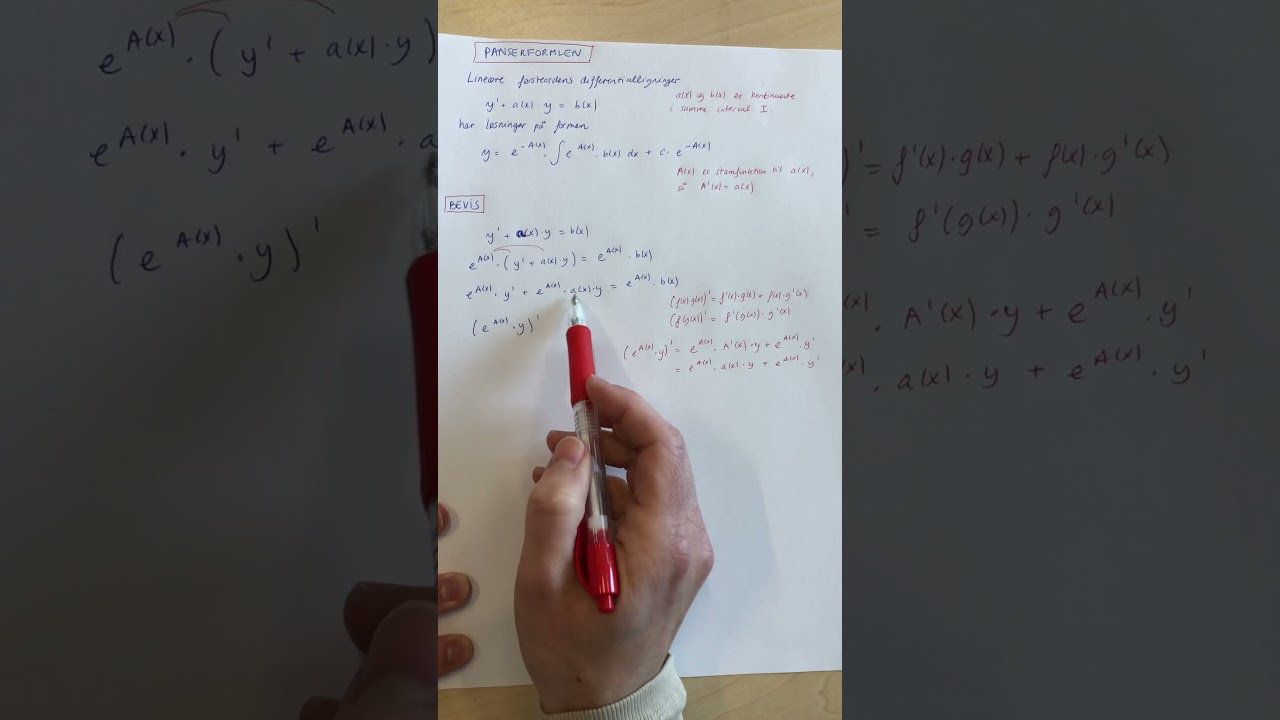 PANSERFORMLEN
Lineære førsteordens differentialligninger
y' + a(x) · y = b(x)
a(x) og b(x) er kontinuerte
i samme interval I.
har løsninger på formen
y = e^{-A(x)} · ∫ e^{A(x)} · b(x) dx + c · e^{-A(x)}
A(x) er stamfunktion til a(x),
så A'(x) = a(x)
BEVIS
y' + a(x) · y = b(x)
e^{A(x)} · (y' + a(x) · y) = e^{A(x)} · b(x)
e^{A(x)} · y' + e^{A(x)} · a(x) · y = e^{A(x)} · b(x)
(f(x)·g(x))' = f'(x)·g(x) + f(x)·g'(x)
(f(g(x)))' = f'(g(x)) · g'(x)
(e^{A(x)} · y)'
(e^{A(x)} · y)' = e^{A(x)} · A'(x) · y + e^{A(x)} · y'
= e^{A(x)} · a(x) · y + e^{A(x)} · y'